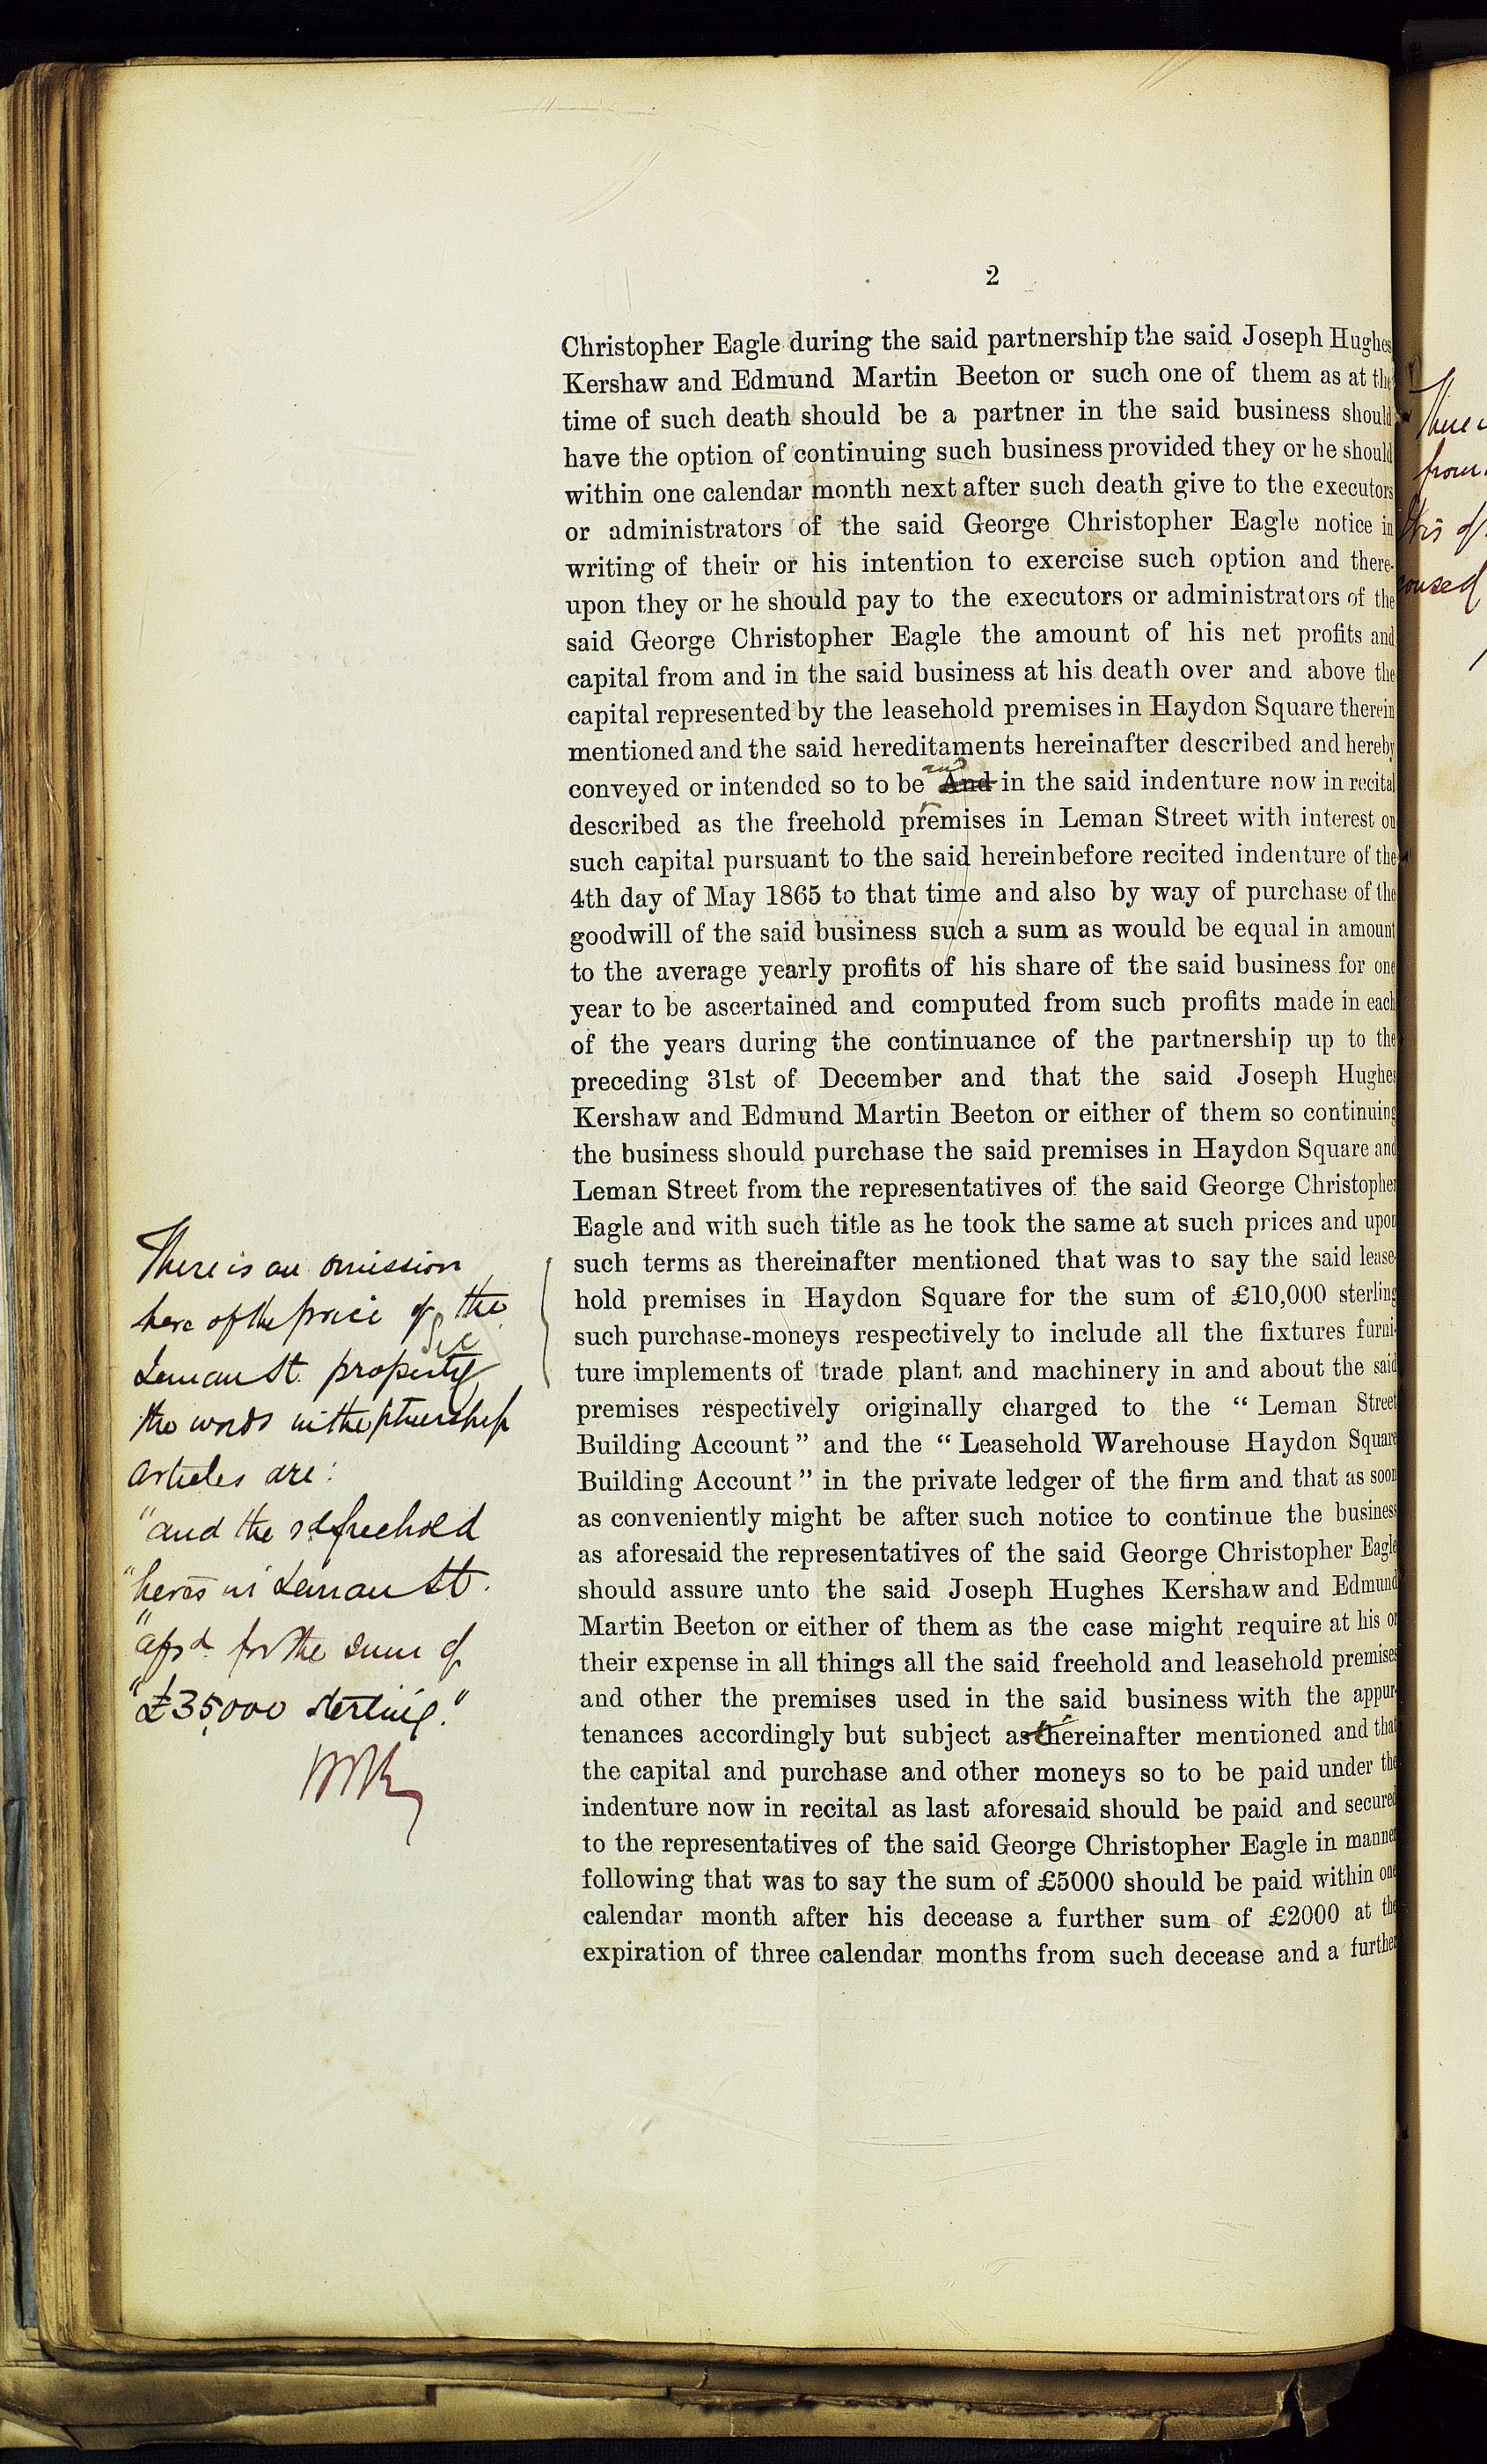 2
Christopher Eagle during the said partnership the said Joseph Hughes
Kershaw and Edmund Martin Beeton or such one of them as at the
time of such death should be a partner in the said business should
have the option of continuing such business provided they or he should
within one calendar month next after such death give to the executors
or administrators of the said George Christopher Eagle notice in
writing of their or his intention to exercise such option and there-
upon they or he should pay to the executors or administrators of the
said George Christopher Eagle the amount of his net profits and
capital from and in the said business at his death over and above the
capital represented by the leasehold premises in Haydon Square therein
mentioned and the said hereditaments hereinafter described and hereby
and
conveyed or intended so to be And in the said indenture now in recital
described as the freehold premises in Leman Street with interest on
such capital pursuant to the said hereinbefore recited indenture of the
4th day of May 1865 to that time and also by way of purchase of the
goodwill of the said business such a sum as would be equal in amount
to the average yearly profits of his share of the said business for one
year to be ascertained and computed from such profits made in each
of the years during the continuance of the partnership up to the
preceding 31st of December and that the said Joseph Hughes
Kershaw and Edmund Martin Beeton or either of them so continuing
the business should purchase the said premises in Haydon Square and
Leman Street from the representatives of the said George Christopher
Eagle and with such title as he took the same at such prices and upon
such terms as thereinafter mentioned that was to say the said lease-
hold premises in Haydon Square for the sum of £10,000 sterling
such purchase-moneys respectively to include all the fixtures furni-
ture implements of trade plant and machinery in and about the said
premises respectively originally charged to the “Leman Street
Building Account” and the “Leasehold Warehouse Haydon Square
Building Account” in the private ledger of the firm and that as soon
as conveniently might be after such notice to continue the business
as aforesaid the representatives of the said George Christopher Eagle
should assure unto the said Joseph Hughes Kershaw and Edmund
Martin Beeton or either of them as the case might require at his or
their expense in all things all the said freehold and leasehold premises
and other the premises used in the said business with the appur-
tenances accordingly but subject as thereinafter mentioned and that
the capital and purchase and other moneys so to be paid under the
indenture now in recital as last aforesaid should be paid and secured
to the representatives of the said George Christopher Eagle in manner
following that was to say the sum of £5000 should be paid within one
calendar month after his decease a further sum of £2000 at the
expiration of three calendar months from such decease and a further
There is an omission
here of the price of the
Sic
Leman St. property
the words in the ptnership
articles are:
"and the sd freehold
"heres in Leman St.
"afsd for the sum of
"£35,000 sterling."
There
from
this of